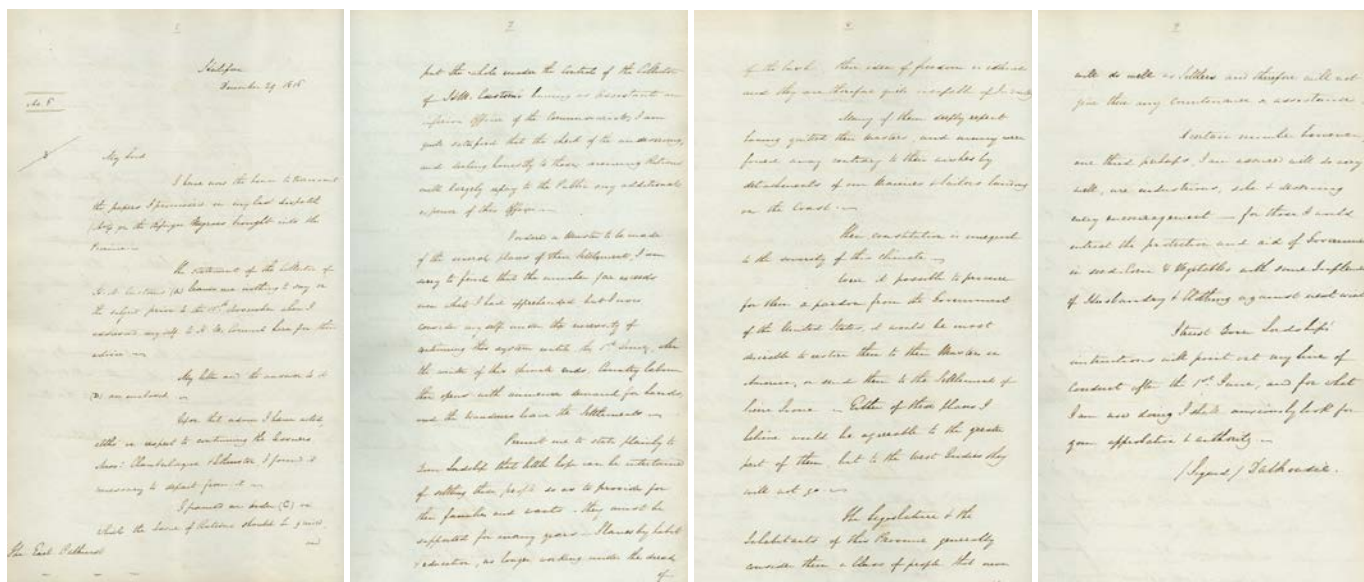 5
Halifax
December 29 1816
No. 8
My Lord
I have now the honor to transmit
the papers I promised in my last dispatch
on the Refugee Negroes brought into the
Province.
The statement of the Collector of
H. M. Customs (A) leaves me nothing to say on
the subject prior to the November when I
addressed myself to H. M. Council here for their
advice
My letter and the answer to it
(B) are enclosed
Upon that advice I have acted,
in respect to continuing the
I found it
necessary to depart from it
I framed an order (C) on
which the issue of Rations should be
and
The Earl Bathurst
7
put the whole under the control of the Collector
of H.M. Customs having as assistant an
inferior Officer of the Commissariat, I am
quite satisfied that the check of the undeserving,
and dealing honestly to those receiving Rations
will largely repay to the Public any additional
expence of this Office
I ordered a Muster to be made
of the several places of these Settlements, I am
sorry to find that the number far exceeds
what I had apprehended but I now
consider myself under the necessity of
continuing this system until the 1st June, when
the winter of this climate ends. Country labour
then opens with immense demand for hands,
and the Wanderers leave the Settlements
Permit me to state plainly to
Your Lordship that little hope can be entertained
of settling these people so as to provide for
their families and wants - they must be
supported for many years - Slaves by habit
& education, no longer working under the dread
of
8
of the lash their idea of freedom is idleness
and they are therefore quite incapable of Industry
Many of them deeply regret
having quitted their Masters, and many were
forced away contrary to their wishes by
detachments of our Marines & Sailors landing
on the Coast.
Their constitution is unequal
to the severity of this climate
Were it possible to procure
for them a pardon from the Government
of the United States, it would be most
desirable to restore them to their Masters in
America, or send them to the Settlement of
Sierra Leone - Either of these plans I
believe would be agreeable to the greater
part of them, but to the West Indies they
will not go
The Legislature & the
Inhabitants of this Province generally
consider them a Class of people that never
9
will do well as Settlers and therefore will not
give them any countenance or assistance
A certain number however,
one third perhaps, I am assured will do very
well, are industrious, sober & deserving
every encouragement - for those I would
entreat the protection and aid of Government
in seed Corn & Vegetables with some Implements
of Husbandry & Clothing against next winter
I trust Your Lordship's
instructions will point out my line of
conduct after the 1st June, and for what
I am now doing I shall anxiously look for
your approbation & authority
(Signed) Dalhousie.